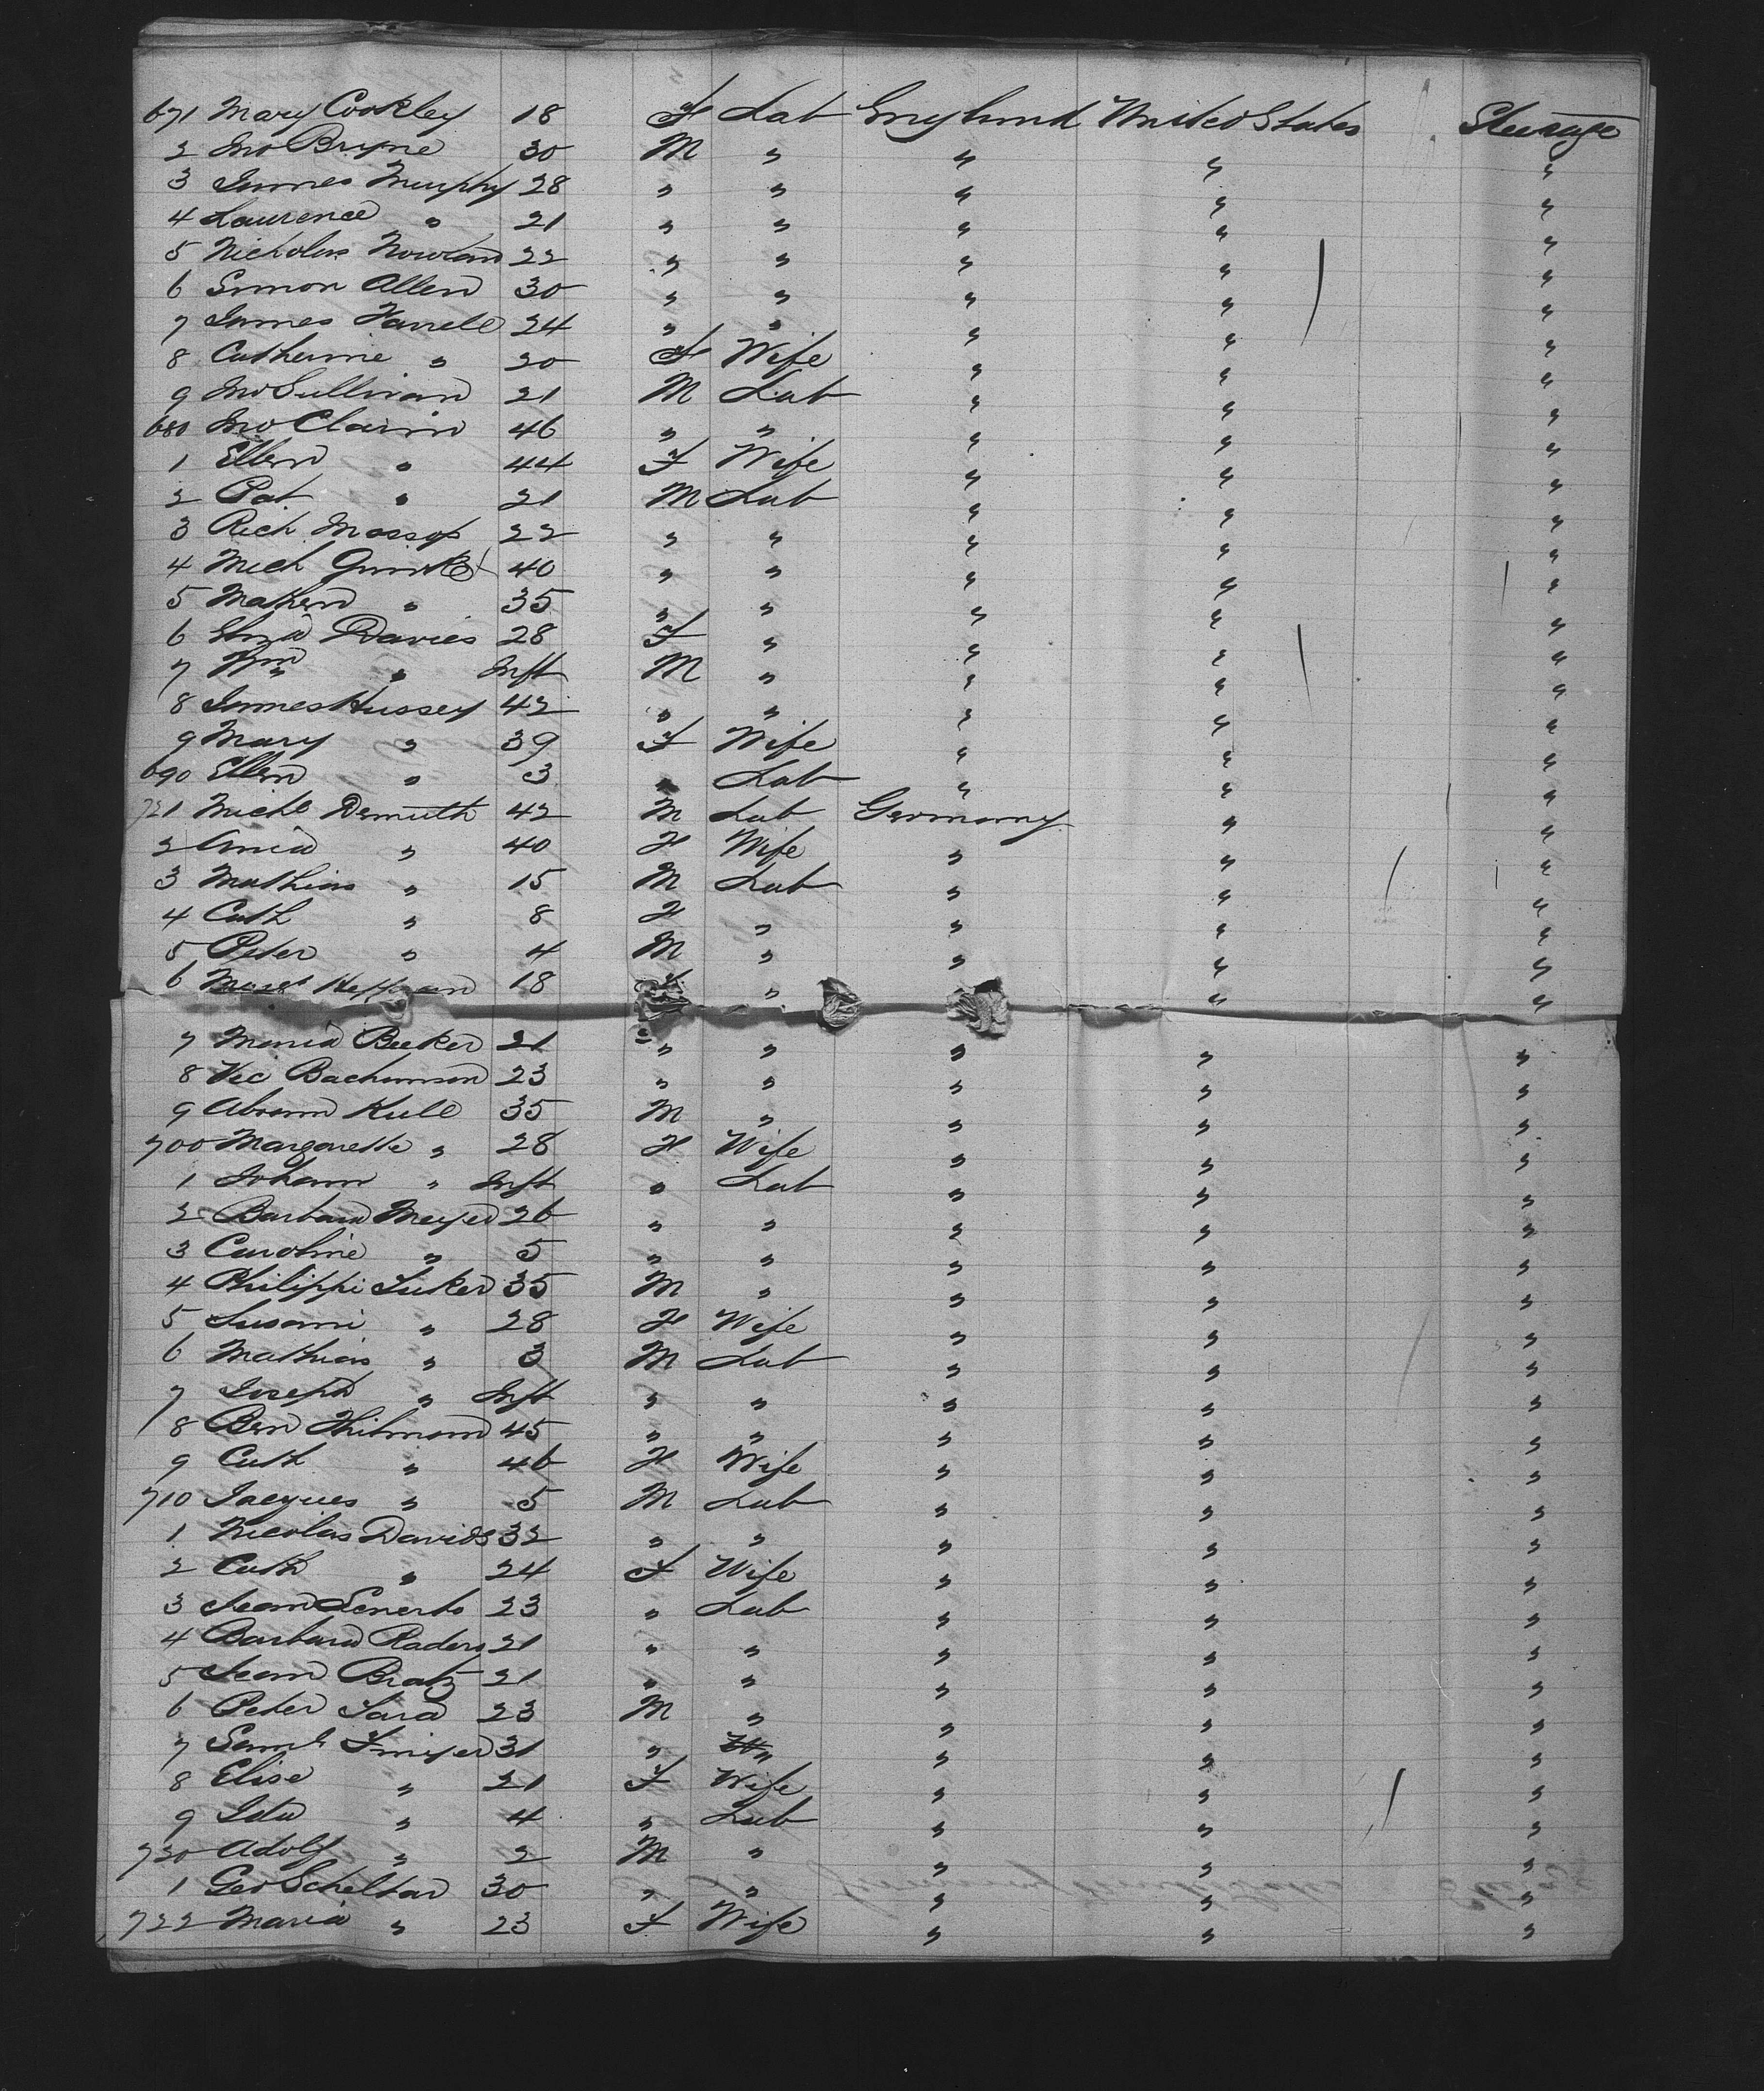 671 Mary Cookley 18 F Lab England United States Steerage
2 Jno Bryne 30 M " " " "
3 James Murphy 28 " " " " "
4 Laurence " 21 " " " " "
5 Nicholas Nowland 22 " " " " "
6 Simon Allen 30 " " " " "
7 James Farrell 24 " " " " "
8 Catherine " 20 F Wife " " "
9 Jno Sullivan 21 M Lab " " "
680 Jno Clairin 46 " " " " "
1 Ellen " 44 F Wife " " "
2 Pat " 21 M Lab " " "
3 Rich Mossop 22 " " " " "
4 Mich 40 " " " " "
5 " 35 " " " " "
6 Eliza Davies 28 F " " " "
7 Wm " Inft M " " " "
8 James Hussey 42 " " " " "
9 Mary " 39 F Wife " " "
690 Ellen " 3 " Lab " " "
1 Michl Demuth 42 M Lab Germany " "
2 Anna " 40 F Wife " " "
3 Mathias " 15 M Lab " " "
4 Cath " 8 F " " " "
5 Peter " 4 M " " " "
6 Margt 18 F " " "
7 Maria Becker 21 " " " " "
8 Vic Bachmann 23 " " " " "
9 Abram Kull 35 M " " " "
700 Margarette " 28 F Wife " " "
1 Johann " Inft " Lab " " "
2 Barbara Meyer 26 " " " " "
3 Caroline " 5 " " " " "
4 Philippi Suker 35 M " " " "
5 Susani " 28 F Wife " " "
6 Mathias " 3 M Lab " " "
7 Joseph " Inft " " " " "
8 Ben Thilmann 45 " " " " "
9 Cath " 46 F Wife " " "
710 Jacques " 5 M Lab " " "
1 Nicolas Davids 32 " " " " "
2 Cath " 24 F Wife " " "
3 Jean Senerts 23 " Lab " " "
4 Barbara Raders 21 " " " " "
5 Jean Bratz 21 " " " " "
6 Peter Sara 23 M " " " "
7 Saml 31 " " " " "
8 Elise " 21 F Wife " " "
9 Ida " 4 " Lab " " "
720 Adolf " 2 M " " " "
1 Geo Scheltar 30 " " " " "
722 Maria " 23 F Wife " " "